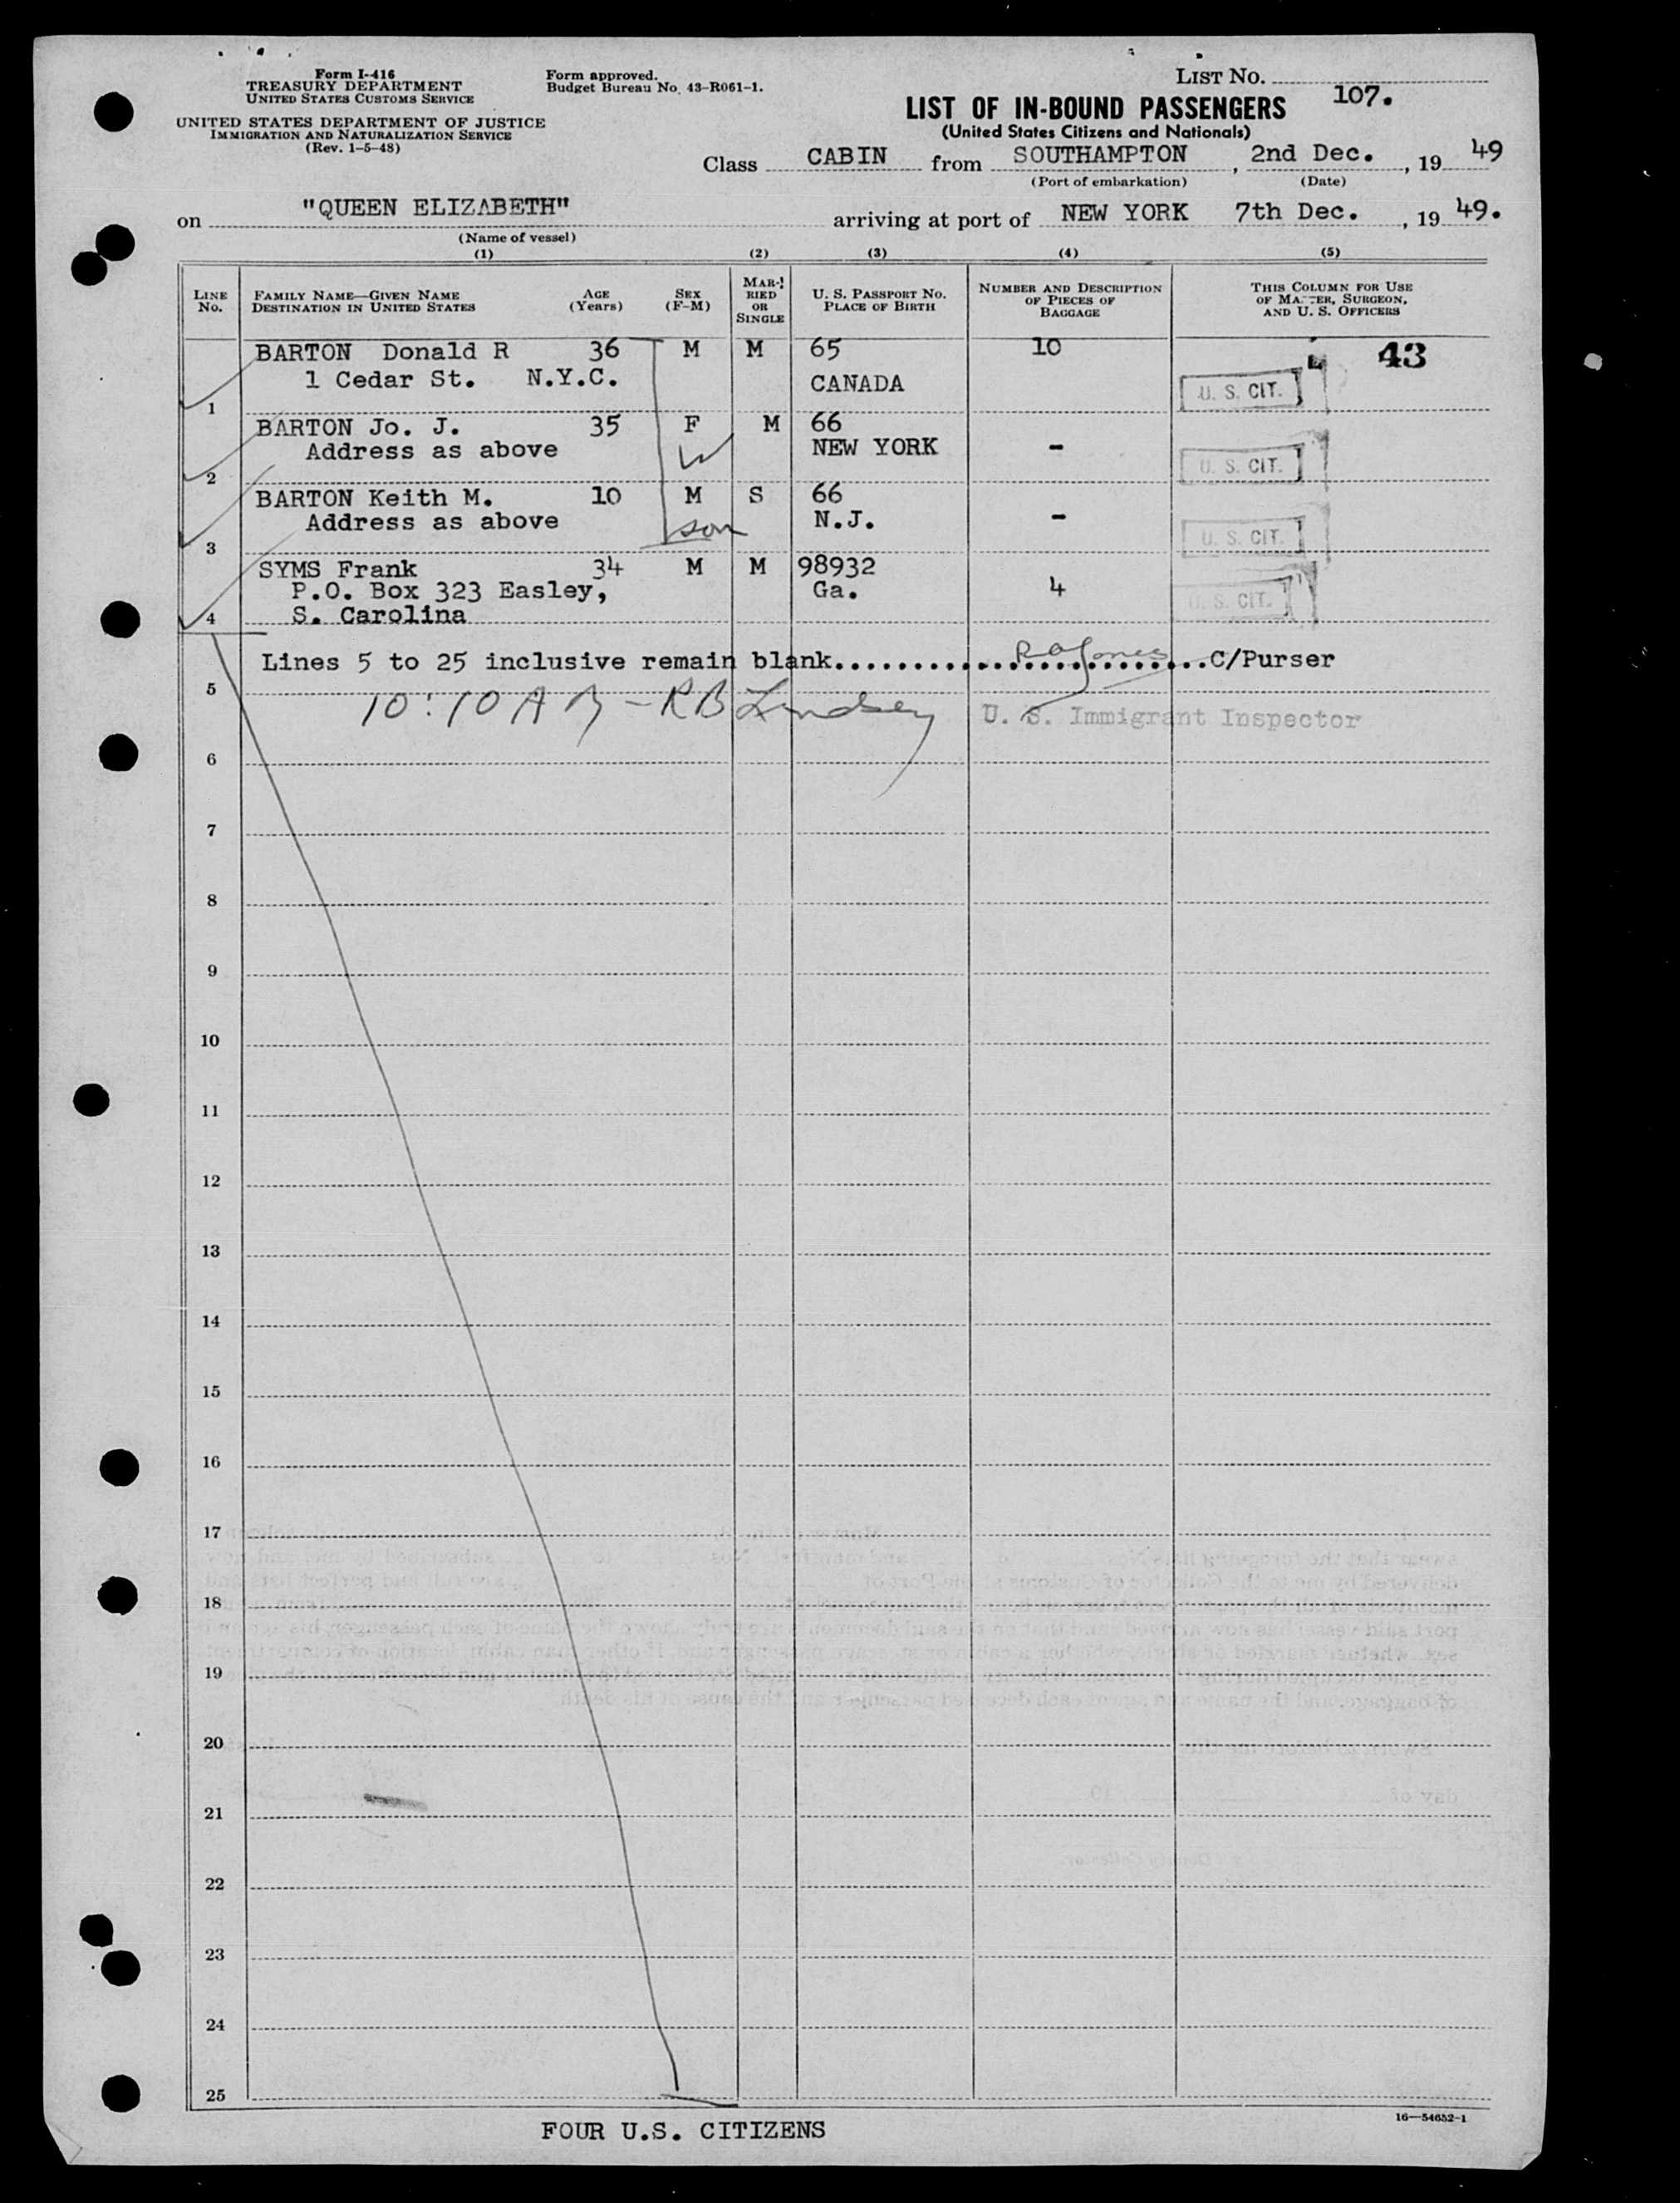 Form I-416
TREASURY DEPARTMENT
UNITED STATES CUSTOMS SERVICE
UNITED STATES DEPARTMENT OF JUSTICE
IMMIGRATION AND NATURALIZATION SERVICE
(Rev. 1-5-48)
Form approved.
Budget Bureau No. 43-R061-1.
LIST NO. 107.
LIST OF IN-BOUND PASSENGERS
(United States Citizens and Nationals)
Class CABIN from SOUTHAMPTON, 2nd Dec., 19 49
(Port of embarkation) (Date)
on "QUEEN ELIZABETH" arriving at port of NEW YORK 7th Dec., 19 49.
(Name of vessel)
(1) (2) (3) (4) (5)
LINE NO.
FAMILY NAME—GIVEN NAME
DESTINATION IN UNITED STATES
AGE (Years)
SEX (F-M)
MARRIED OR SINGLE
U. S. PASSPORT NO.
PLACE OF BIRTH
NUMBER AND DESCRIPTION OF PIECES OF BAGGAGE
THIS COLUMN FOR USE OF MASTER, SURGEON, AND U. S. OFFICERS
BARTON Donald R 36 M M 65 10 43
1 Cedar St. N.Y.C. CANADA U. S. CIT.
1
BARTON Jo. J. 35 F M 66
Address as above W NEW YORK - U. S. CIT.
2
BARTON Keith M. 10 M S 66
Address as above son N.J. - U. S. CIT.
3
SYMS Frank 34 M M 98932
P.O. Box 323 Easley, Ga. 4 U. S. CIT.
4 S. Carolina
Lines 5 to 25 inclusive remain blank........................C/Purser
5
10:10 A M - R B Lindsey U. S. Immigrant Inspector
6
7
8
9
10
11
12
13
14
15
16
17
18
19
20
21
22
23
24
25
16—54652-1
FOUR U.S. CITIZENS